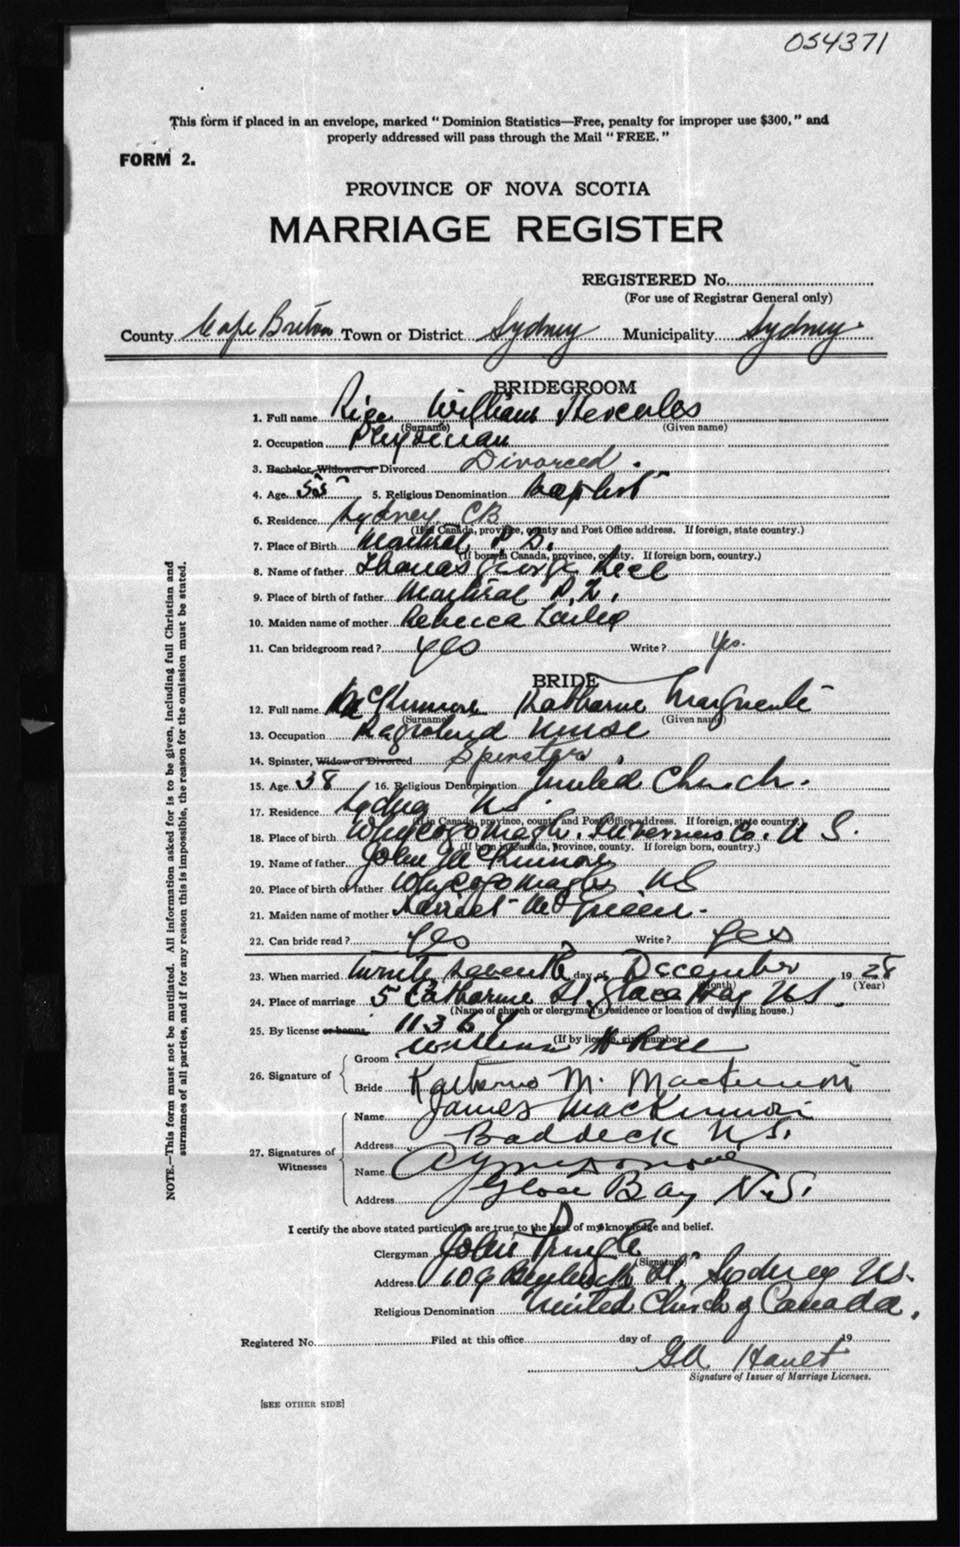 054371
This form if placed in an envelope, marked "Dominion Statistics—Free, penalty for improper use $300," and
properly addressed will pass through the Mail "FREE."
FORM 2.
PROVINCE OF NOVA SCOTIA
MARRIAGE REGISTER
REGISTERED No.
(For use of Registrar General only)
County Cape Breton Town or District Sydney Municipality Sydney
BRIDEGROOM
1. Full name William
(Surname) (Given name)
2. Occupation Physician
3. Bachelor, Widower or Divorced Divorced.
4. Age 55 5. Religious Denomination Baptist
6. Residence Sydney CB
(If in Canada, province, county and Post Office address. If foreign, state country.)
7. Place of Birth
(If born in Canada, province, county. If foreign born, country.)
8. Name of father Thomas George Rice
9. Place of birth of father
10. Maiden name of mother Rebecca
11. Can bridegroom read? yes Write? Yes.
BRIDE
12. Full name McKinnon Katharine Marguerite
(Surname) (Given name)
13. Occupation Nurse
14. Spinster, Widow or Divorced Spinster
15. Age 38 16. Religious Denomination United Church.
17. Residence Sydney NS.
(If in Canada, province, county and Post Office address. If foreign, state country.)
18. Place of birth Whycocomagh. Inverness Co. N S.
(If born in Canada, province, county. If foreign born, country.)
19. Name of father John McKinnon
20. Place of birth of father Whycocomagh NS
21. Maiden name of mother
22. Can bride read? Yes Write? Yes
23. When married Twenty seventh day of December 1928
(Month) (Year)
24. Place of marriage 5 Catharine St. Glace Bay N.S.
(Name of church or clergyman's residence or location of dwelling house.)
25. By license or banns 11364
(If by license, give number.)
26. Signature of Groom William H Rice
Bride M. MacKinnon
27. Signatures of Witnesses Name James MacKinnon
Address Baddeck N.S.
Name
Address Glace Bay N.S.
I certify the above stated particulars are true to the best of my knowledge and belief.
Clergyman John Pringle
(Signature)
Address 109 St. Sydney NS.
Religious Denomination United Church of Canada.
Registered No. Filed at this office day of 19
Signature of Issuer of Marriage Licenses.
[SEE OTHER SIDE]
NOTE.—This form must not be mutilated. All information asked for is to be given, including full Christian and
surnames of all parties, and if for any reason this is impossible, the reason for the omission must be stated.